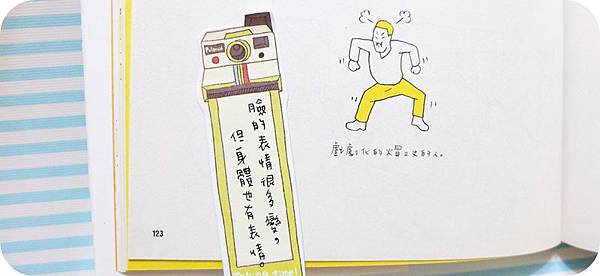 Polaroid
臉的表情很多變，
但身體也有表情。
戲劇化的火冒三丈的人。
123
time!